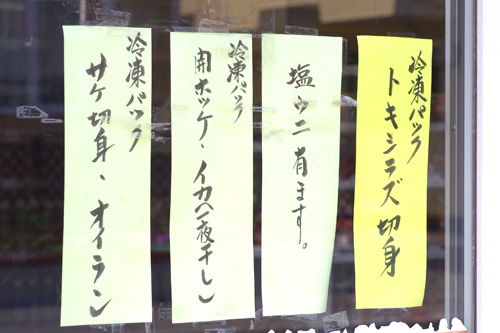 冷凍パック
トキシラズ切身
塩ウニ有ます。
冷凍パック
開ホッケ、イカ(一夜干し)
冷凍パック
サケ切身、オイラン